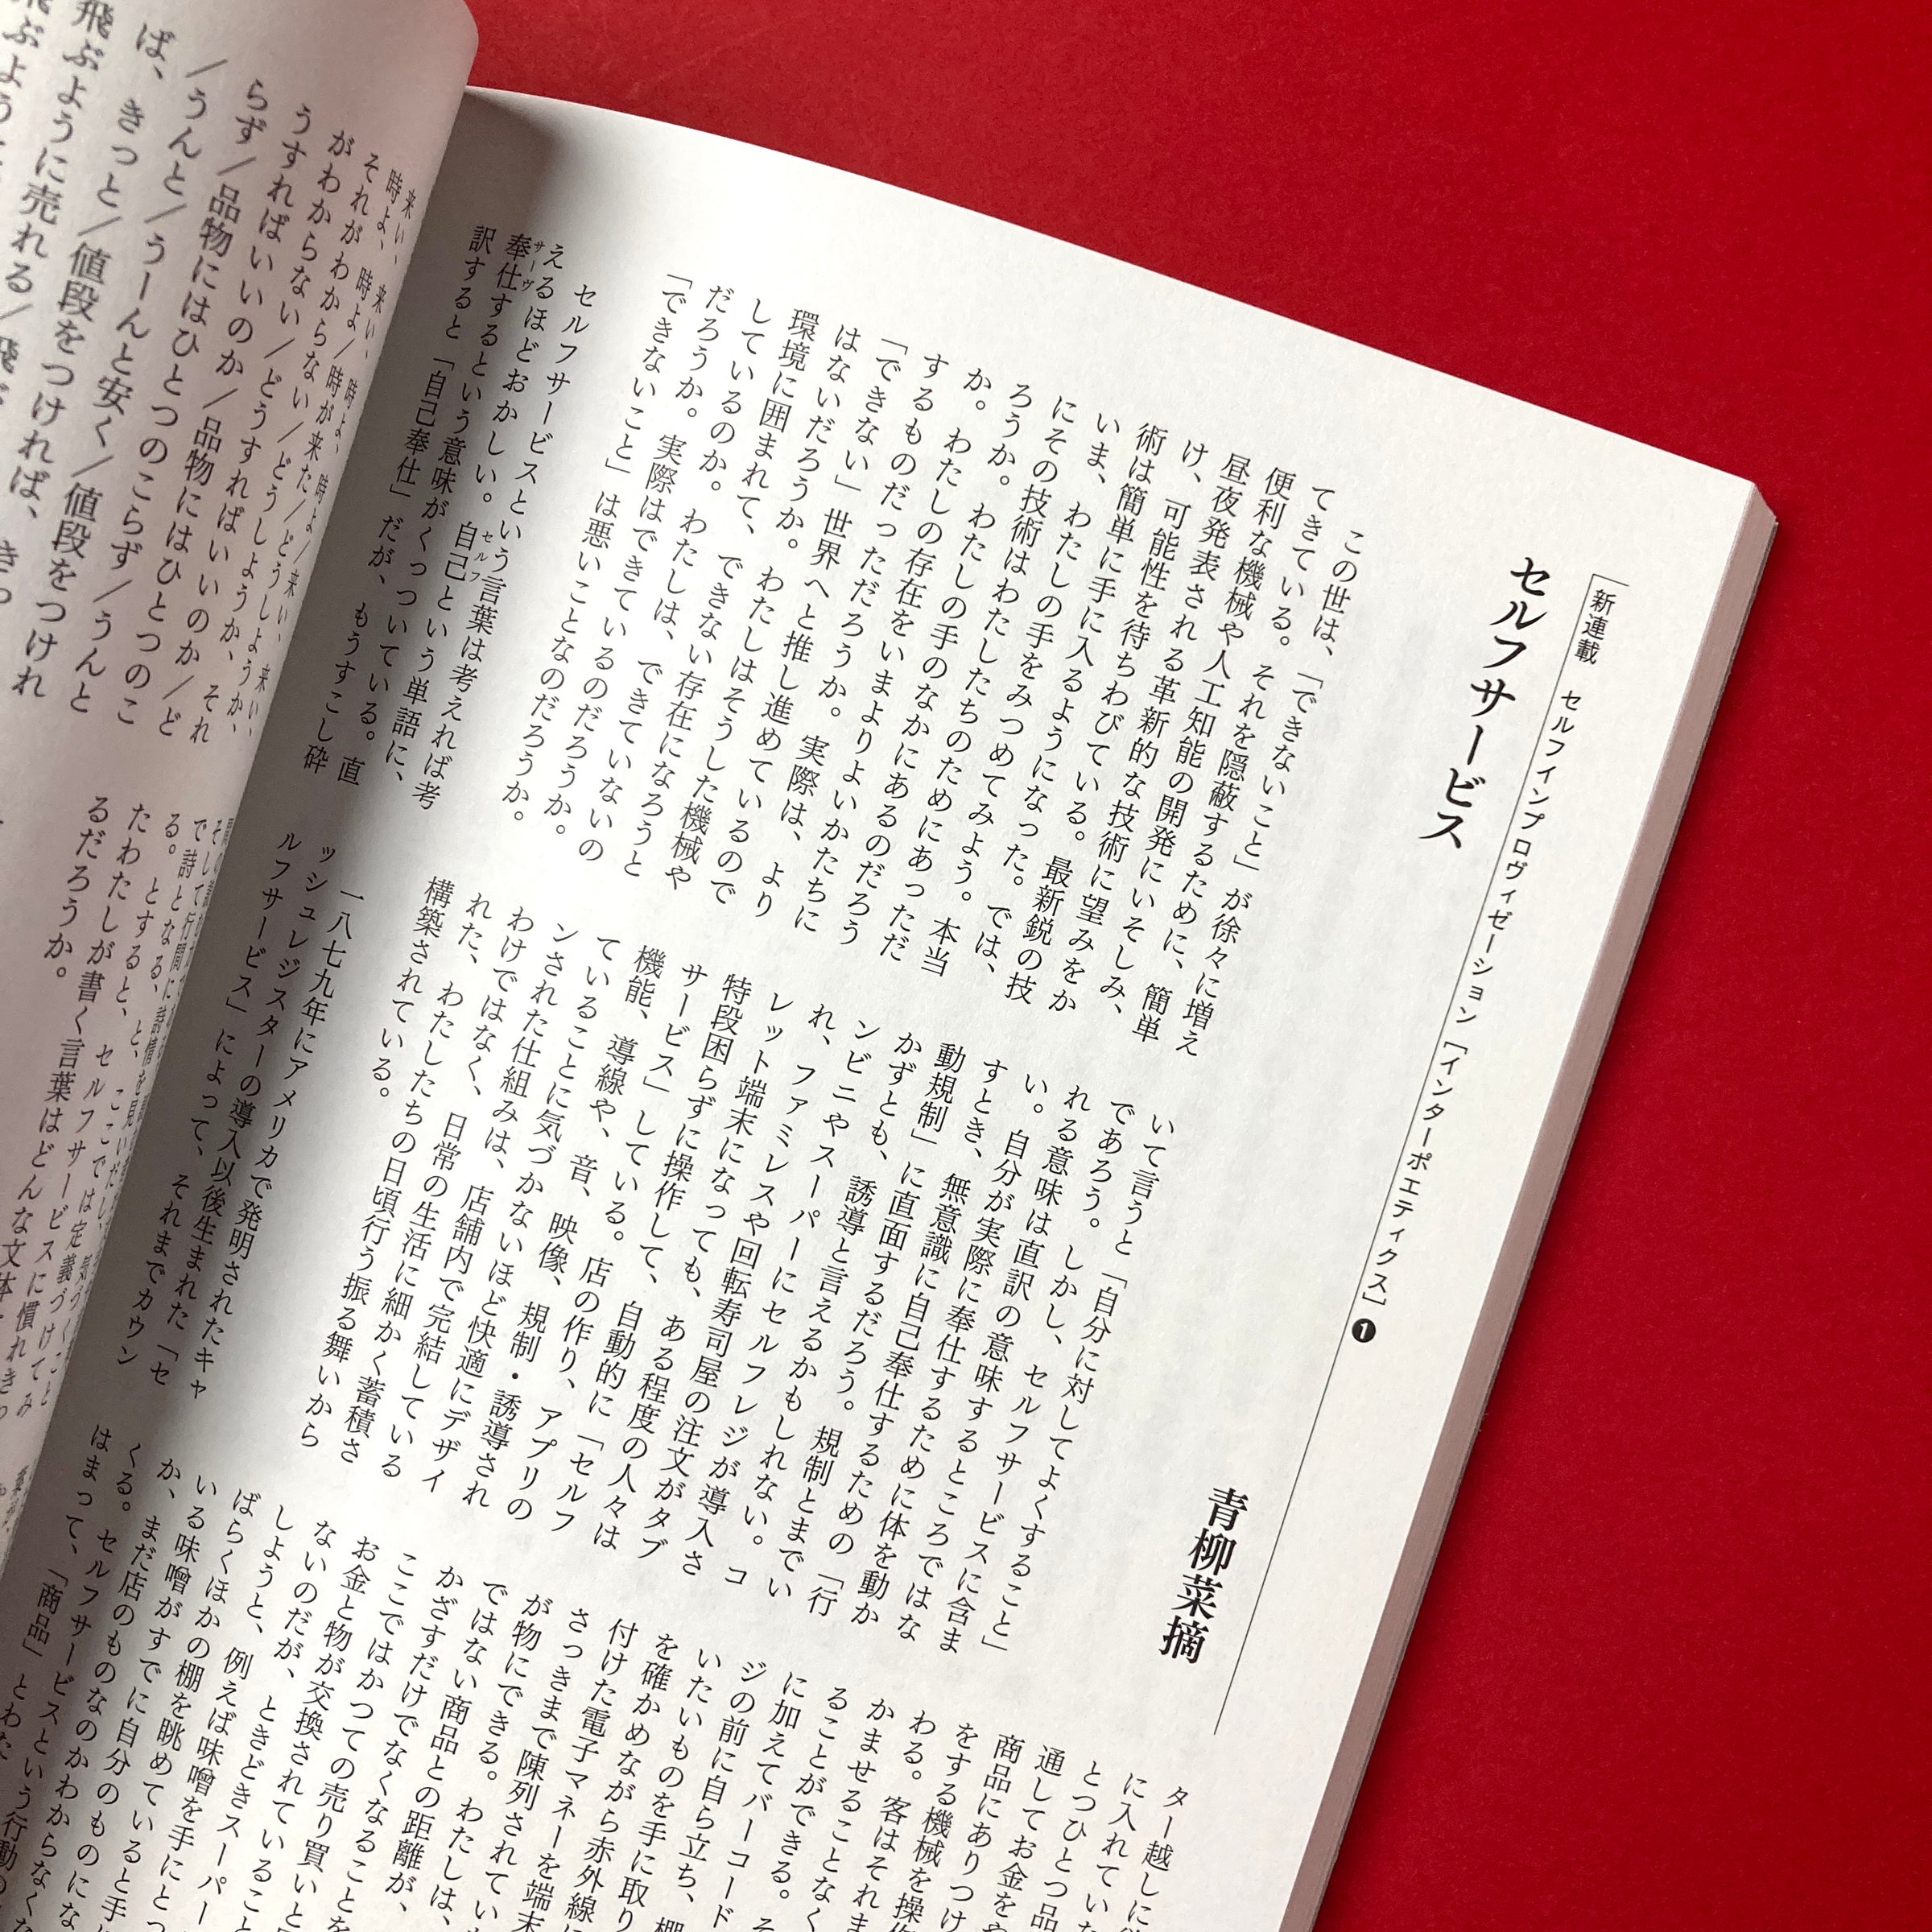 新連載 セルフインプロヴィゼーション[インターポエティクス]❶
セルフサービス
青柳菜摘
この世は、「できないこと」が徐々に増え
てきている。それを隠蔽するために、簡単
便利な機械や人工知能の開発にいそしみ、
昼夜発表される革新的な技術に望みをか
け、可能性を待ちわびている。最新鋭の技
術は簡単に手に入るようになった。では、
いま、わたしの手をみつめてみよう。本当
にその技術はわたしたちのためにあっただ
ろうか。わたしの手のなかにあるのだろう
か。わたしの存在をいまよりよいかたちに
するものだっただろうか。実際は、より
「できない」世界へと推し進めているので
はないだろうか。わたしはそうした機械や
環境に囲まれて、できない存在になろうと
しているのか。わたしは、できていないの
だろうか。実際はできているのだろうか。
「できないこと」は悪いことなのだろうか。
セルフサービスという言葉は考えれば考
えるほどおかしい。自己という単語に、
奉仕するという意味がくっついている。直
訳すると「自己奉仕」だが、もうすこし砕
いて言うと「自分に対してよくすること」
であろう。しかし、セルフサービスに含ま
れる意味は直訳の意味するところではな
い。自分が実際に奉仕するために体を動か
すとき、無意識に自己奉仕するための「行
動規制」に直面するだろう。規制とまでい
かずとも、誘導と言えるかもしれない。コ
ンビニやスーパーにセルフレジが導入さ
れ、ファミレスや回転寿司屋の注文がタブ
レット端末になっても、ある程度の人々は
特段困らずに操作して、自動的に「セルフ
サービス」している。店の作り、アプリの
機能、導線や、音、映像、規制・誘導され
ていることに気づかないほど快適にデザイ
ンされた仕組みは、店舗内で完結している
わけではなく、日常の生活に細かく蓄積さ
れた、わたしたちの日頃行う振る舞いから
構築されている。
一八七九年にアメリカで発明されたキャ
ッシュレジスターの導入以後生まれた「セ
ルフサービス」によって、それまでカウン
ター越しに
に入れてい
とつひとつ品
通してお金を
商品にありつけ
をする機械を操
わる。客はそれま
かませることなく
ることができる。そ
に加えてバーコード
ジの前に自ら立ち、棚
いたいものを手に取り
を確かめながら赤外線に
付けた電子マネーを端末
さっきまで陳列されてい
が物にできる。わたしは、
ではない商品との距離が、
かざすだけでなくなることを
ここではかつての売り買いと
お金と物が交換されていること
ないのだが、ときどきスーパー
しようと、例えば味噌を手にとっ
ばらくほかの棚を眺めていると手
いる味噌がすでに自分のものにな
か、まだ店のものなのかわからなくな
くる。セルフサービスという行動の
はまって、「商品」とわた
来い、時よ、時よ/来い、来い、
時よ、時よ/時が来た/どうしようか、
それがわからない/どうしようか、それ
がわからない/どうすればいいのか/ど
うすればいいのか/品物にはひとつのこ
らず/品物にはひとつのこらず/うんと
/うんと/うーんと安く/値段をつけれ
ば、きっと/値段をつければ、きっ
飛ぶように売れる/飛
る。とすると、ここでは定義づけてみ
たわたしが書く言葉はどんな文体
るだろうか。